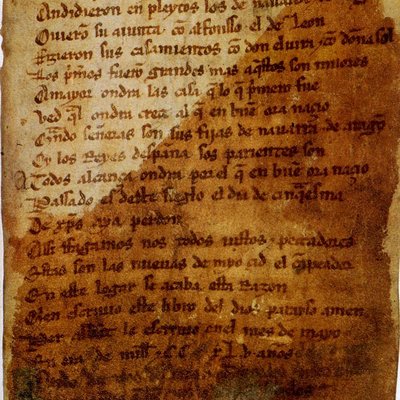 Andidieron en pleytos los de nauarra
Ouierõ su aiunta cõ alfonsso el de leon
Fizieron sus casamientos cõ don eluira & cõ doña sol
Los pͥmos fuerõ grandes mas aq̃stos son miiores
A mayor ondra las casa q̃ lo q̃ pͥmero fue
Ved q̃l ondra creçe al q̃ en buẽ ora naçio
Quãdo señoras son sus fijas de nauarra & de aragõ
Oy los Reyes despaña sos parientes son
A Todos alcança ondra por el q̃ en buẽ ora naçio
Passado es deste sieglo el dia de cinq̃esma
De xp̃s aya perdon
Assi ffagamos nos todos iustos & peccadores
Estas son las nueuas de myo çid el cãpeador
En este logar se acaba esta Razon
Quien escriuio este libro del dios parayso amen
Per abbat le escriuio en el mes de mayo
En era de mill & C.C xL.v. años